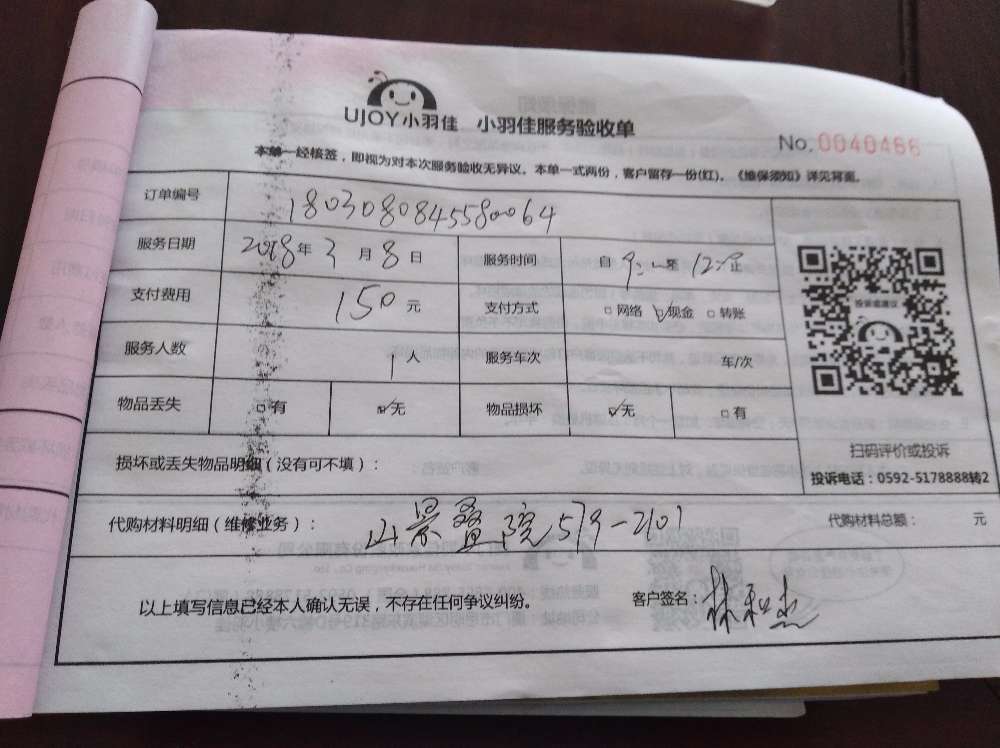 UJOY小羽佳 小羽佳服务验收单
No.0040466
本单一经核签，即视为对本次服务验收无异议。本单一式两份，客户留存一份(红)。《维保须知》详见背面。
订单编号 1803080845580064
服务日期 2018年3月8日 服务时间 自9:起12:止
支付费用 150元 支付方式 □网络 ☑现金 □转账
服务人数 1人 服务车次 车/次
物品丢失 □有 ☑无 物品损坏 ☑无 □有
投诉或建议
扫码评价或投诉
投诉电话：0592-5178888转2
损坏或丢失物品明细（没有可不填）：
代购材料明细（维修业务）： 山景叠院579-2101 代购材料总额： 元
以上填写信息已经本人确认无误，不存在任何争议纠纷。 客户签名：林和杰